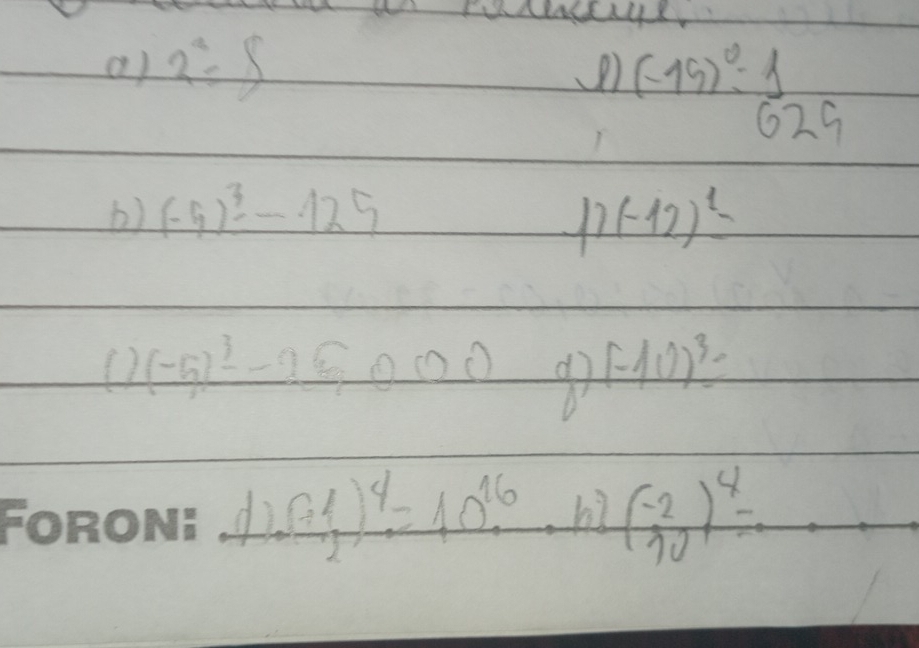 a) 2³ = 8 e) (-15)⁰ = 1
625
b) (-5)³ = - 125 f) (-12)¹ =
c) (-5)³ = - 25 000 g) (-10)³ =
FORONI d) (-1/2)⁴ = 10¹⁶ h) (-2/10)⁴ =